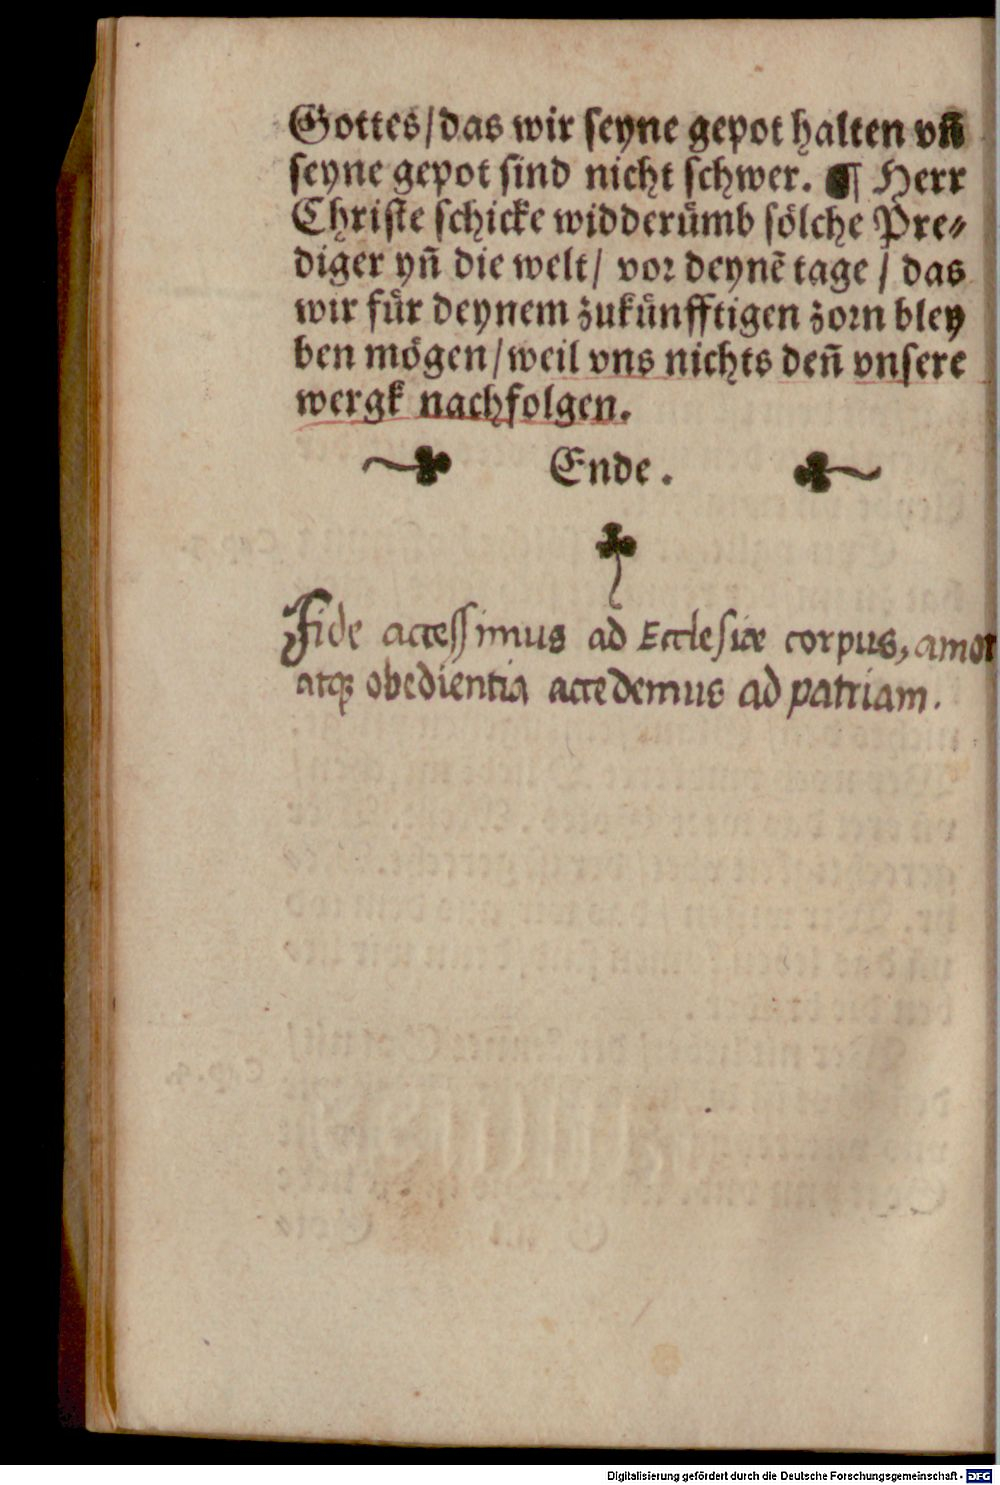 Gottes/das wir seyne gepot halten vñ
seyne gepot sind nicht schwer. ¶ Herr
Christe schicke widderuͤmb soͤlche Pre⸗
diger yñ die welt/ vor deynẽ tage / das
wir fuͤr deynem zukuͤnfftigen zorn bley
ben moͤgen/weil vns nichts deñ vnsere
wergk nachfolgen.
Ende.
Fide accessimus ad Ecclesiæ corpus, amor
atq; obedientia accedemus ad patriam.
Digitalisierung gefördert durch die Deutsche Forschungsgemeinschaft - DFG